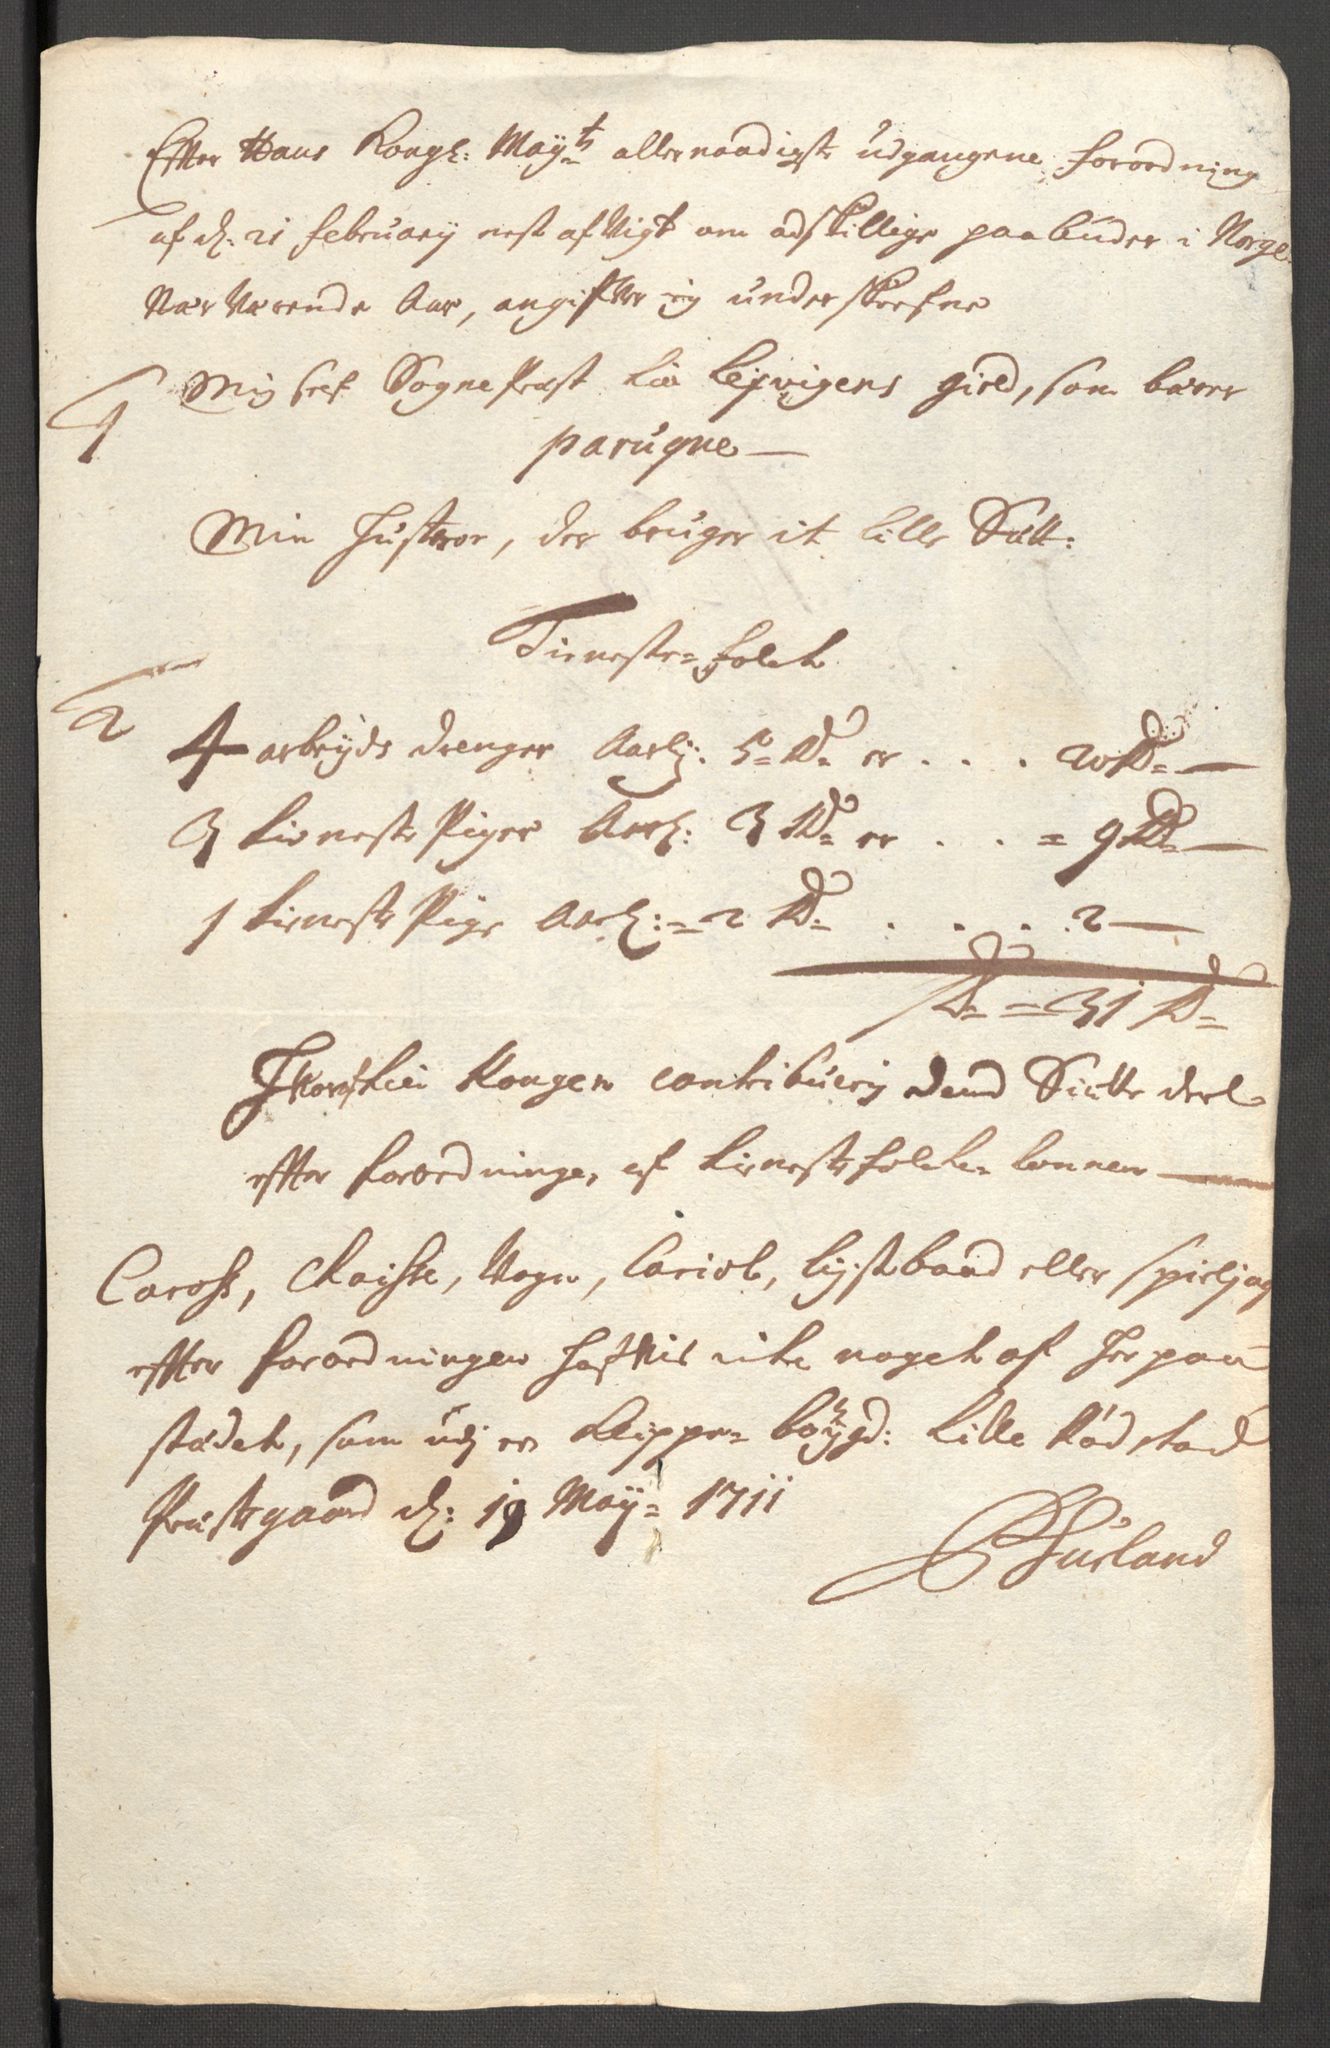 Efter Hans Kongl: Mayts allernaadigste udgangene forordning
af d: 21 february nest afvigt om adskillige paabuder i Norge
Nærværende Aar, angifver ieg underskrefne
1 Mig self Sognepræst til Lexvigens gield, som bærer
paruqve —
Min hustroe, der bruger it lille Sætt:
Tieneste-folck
2
4 arbeyds drenger Aarlig: 5 Rdr er . . . 20 Rdr —
3 tieneste Piger Aarl: 3 Rdr er . . = 9 Rdr —
1 tieneste Pige Aarl: = 2 Rdr . . . . 2 —
Rdr = 31 Rdr
Kongen contribuerij dend Siette deel
efter forordningen, af tienestefolckens lønnen —
Caross, Chaisse, Vogn, Cariol, lystbaad eller spieljagt
efter forordningen hafvis icke noget af her paa
stædet, som udj en bøygd: Lille
Præstegaard d: 19 May = 1711
Hurland